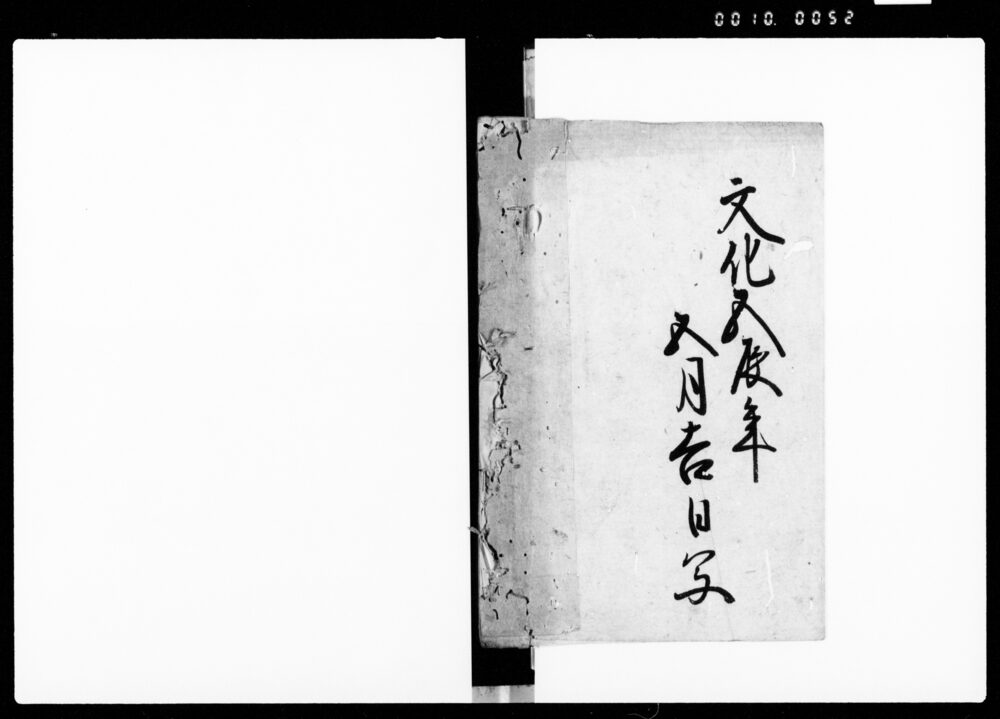 0010. 0052
文化五辰年
五月吉日写